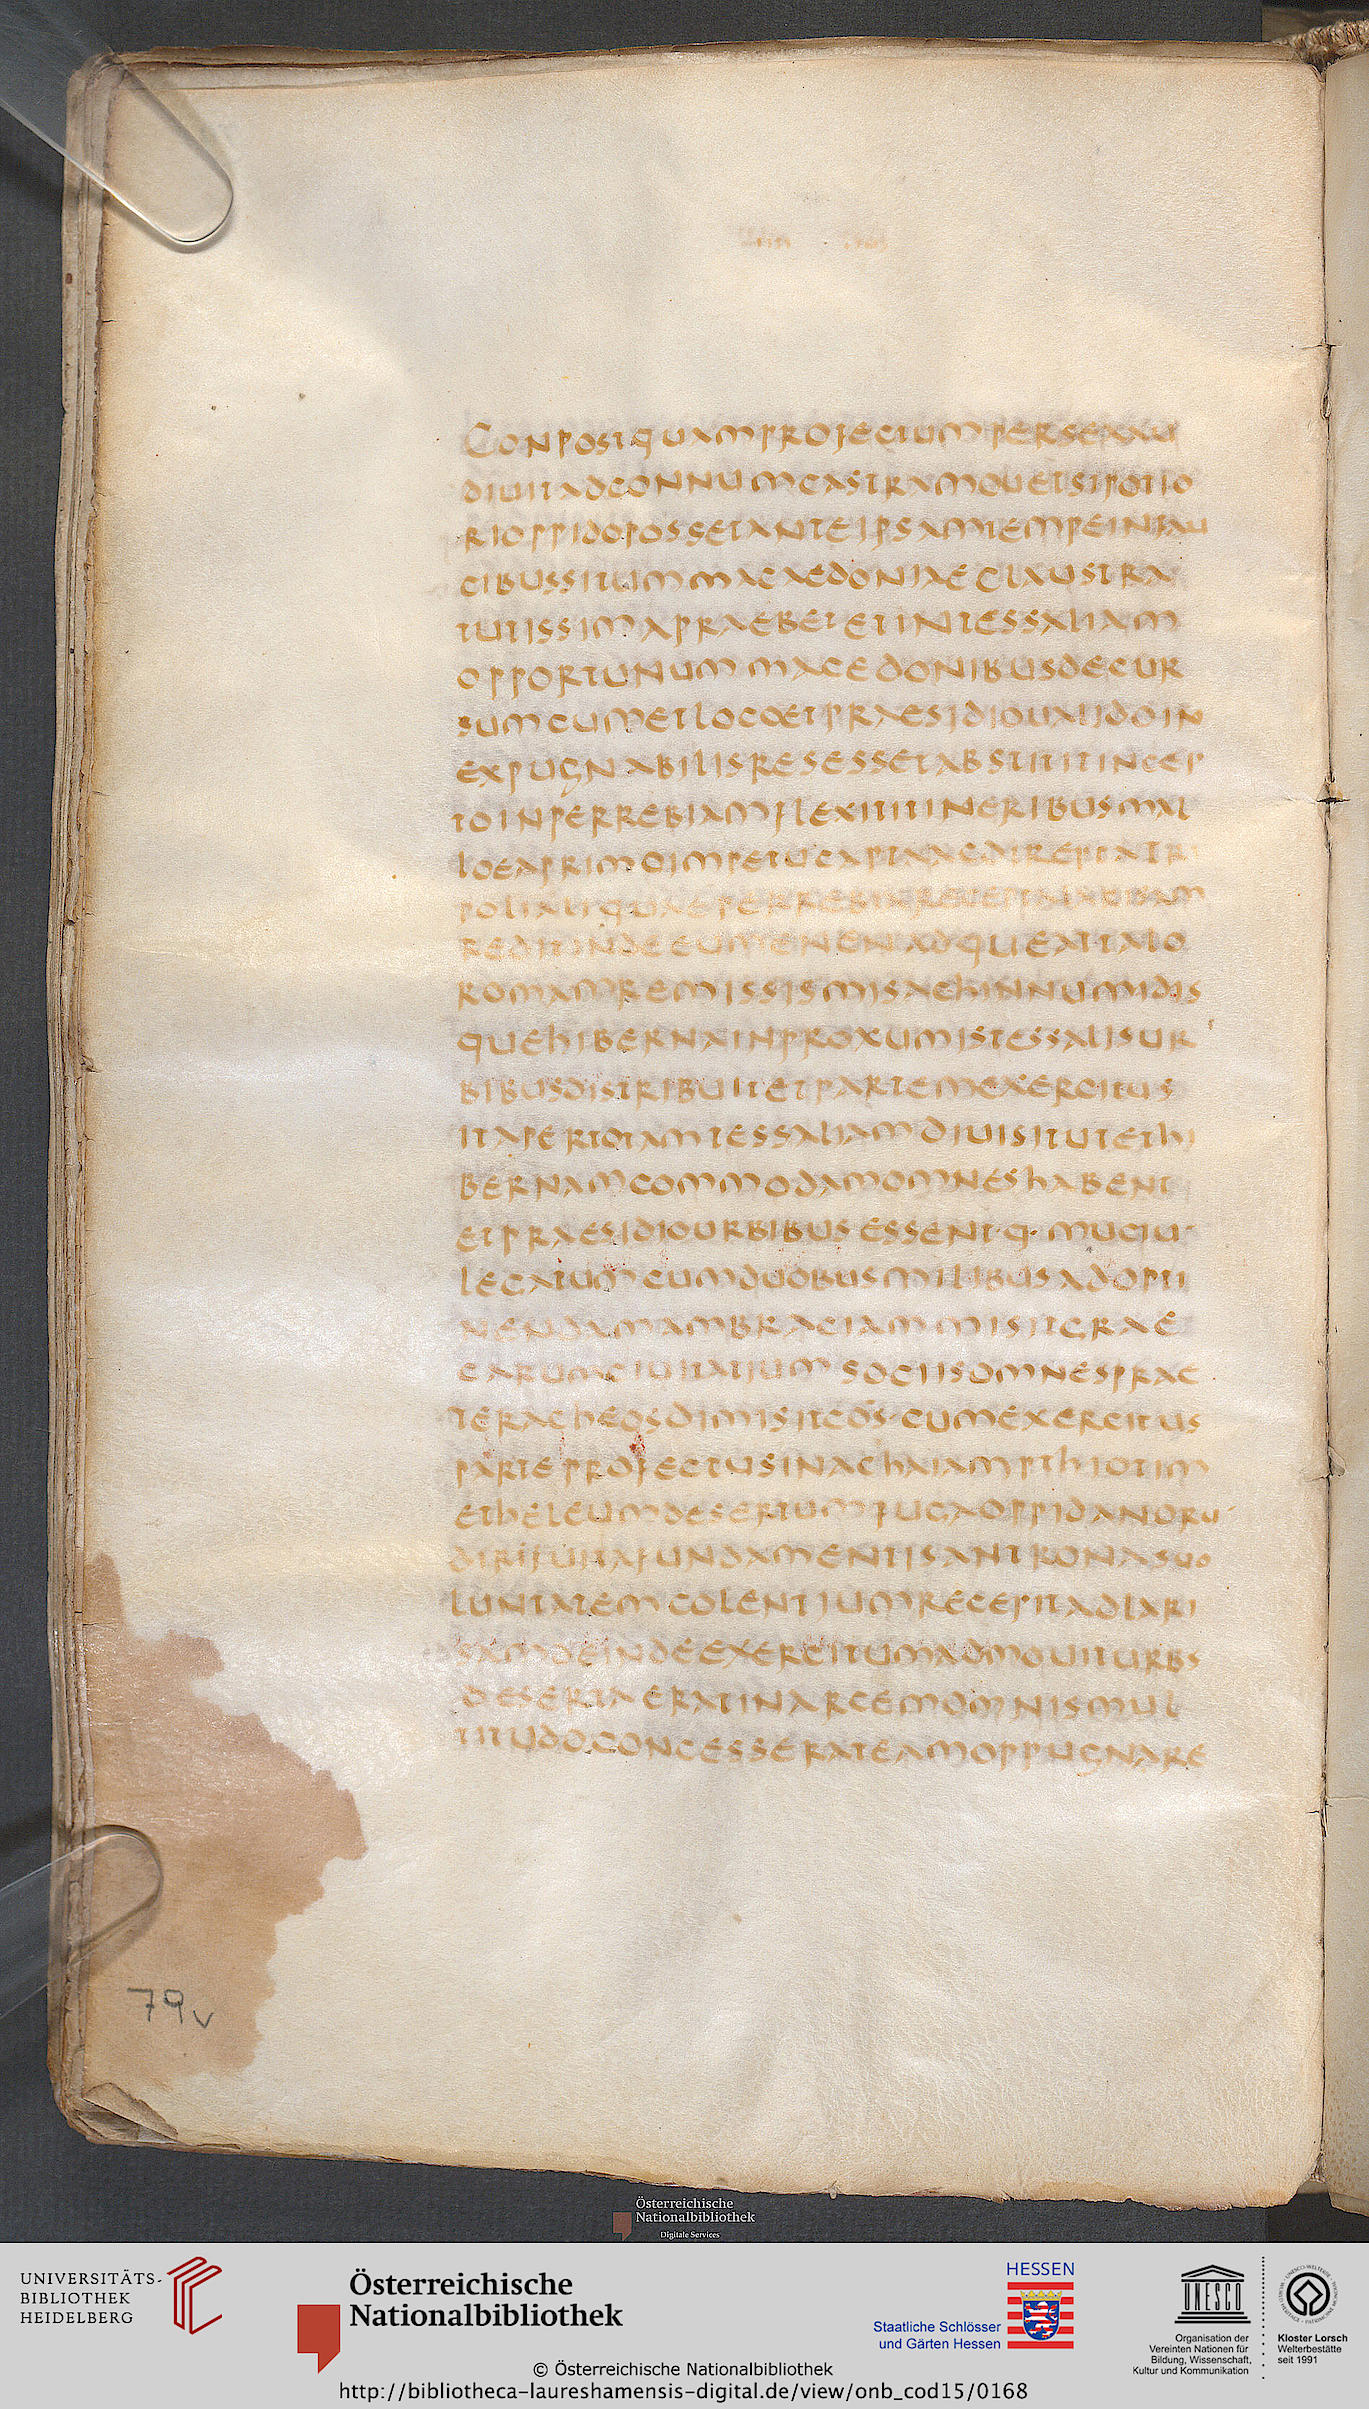 CONPOSTQUAMPROFECTUMPERSEAAU
DIUITADCONNUMCASTRAMOUETSIPOTIO
RIOPPIDOPOSSETANTEIPSAMTEMPEINFAU
CIBUSSITUMMACAEDONIAECLAUSTRA
TUTISSIMAPRAEBETETINTESSALIAM
OPPORTUNUMMACEDONIBUSDECUR
SUMCUMETLOCOETPRAESIDIOUALIDOIN
EXPUGNABILISRESESSETABSTITITINCEP
TOINPERREBIAMFLEXITITINERIBUSMAL
LOEAPRIMOIMPETUCAPTA
REDITINDEEUMENENADQUEATTALO
ROMAMREMISSISMISAGENISINUMIDIS
QUEHIBERNAINPROXUMISTESSALISUR
BIBUSDISTRIBUITETPARTEMEXERCITUS
ITAPERTOTAMTESSALIAMDIUISITUTETHI
BERNAMCOMMODAMOMNESHABENT
ETPRAESIDIOURBIBUSESSENT·Q·MUCIU
LEGATUMCUMDUOBUSMILIBUSADOPTI
NENDAMAMBRACIAMMISITGRAE
CARUMCIUITATIUMSOCIISOMNESPRAE
TERACHEOSDIMISITCO·S·CUMEXERCITUS
PARTEPROFECTUSINACHAIAMPTHIOTIM
ETBELEUMDESERTUMFUGAOPPIDANORU
DIRIFUITAFUNDAMENTISANTRONASUO
LUNTATEMCOLENTIUMRECEPITADLARI
SAMDEINDEEXERCITUMADMOUITURBS
DESERTAERATINARCEMOMNISMUL
TITUDOCONCESSERATEAMOPPUGNARE
79v
Österreichische
Nationalbibliothek
Digitale Services
UNIVERSITÄTS-
BIBLIOTHEK
HEIDELBERG
Österreichische
Nationalbibliothek
HESSEN
Staatliche Schlösser
und Gärten Hessen
UNESCO
Organisation der
Vereinten Nationen für
Bildung, Wissenschaft,
Kultur und Kommunikation
Kloster Lorsch
Welterbestätte
seit 1991
© Österreichische Nationalbibliothek
http://bibliotheca-laureshamensis-digital.de/view/onb_cod15/0168